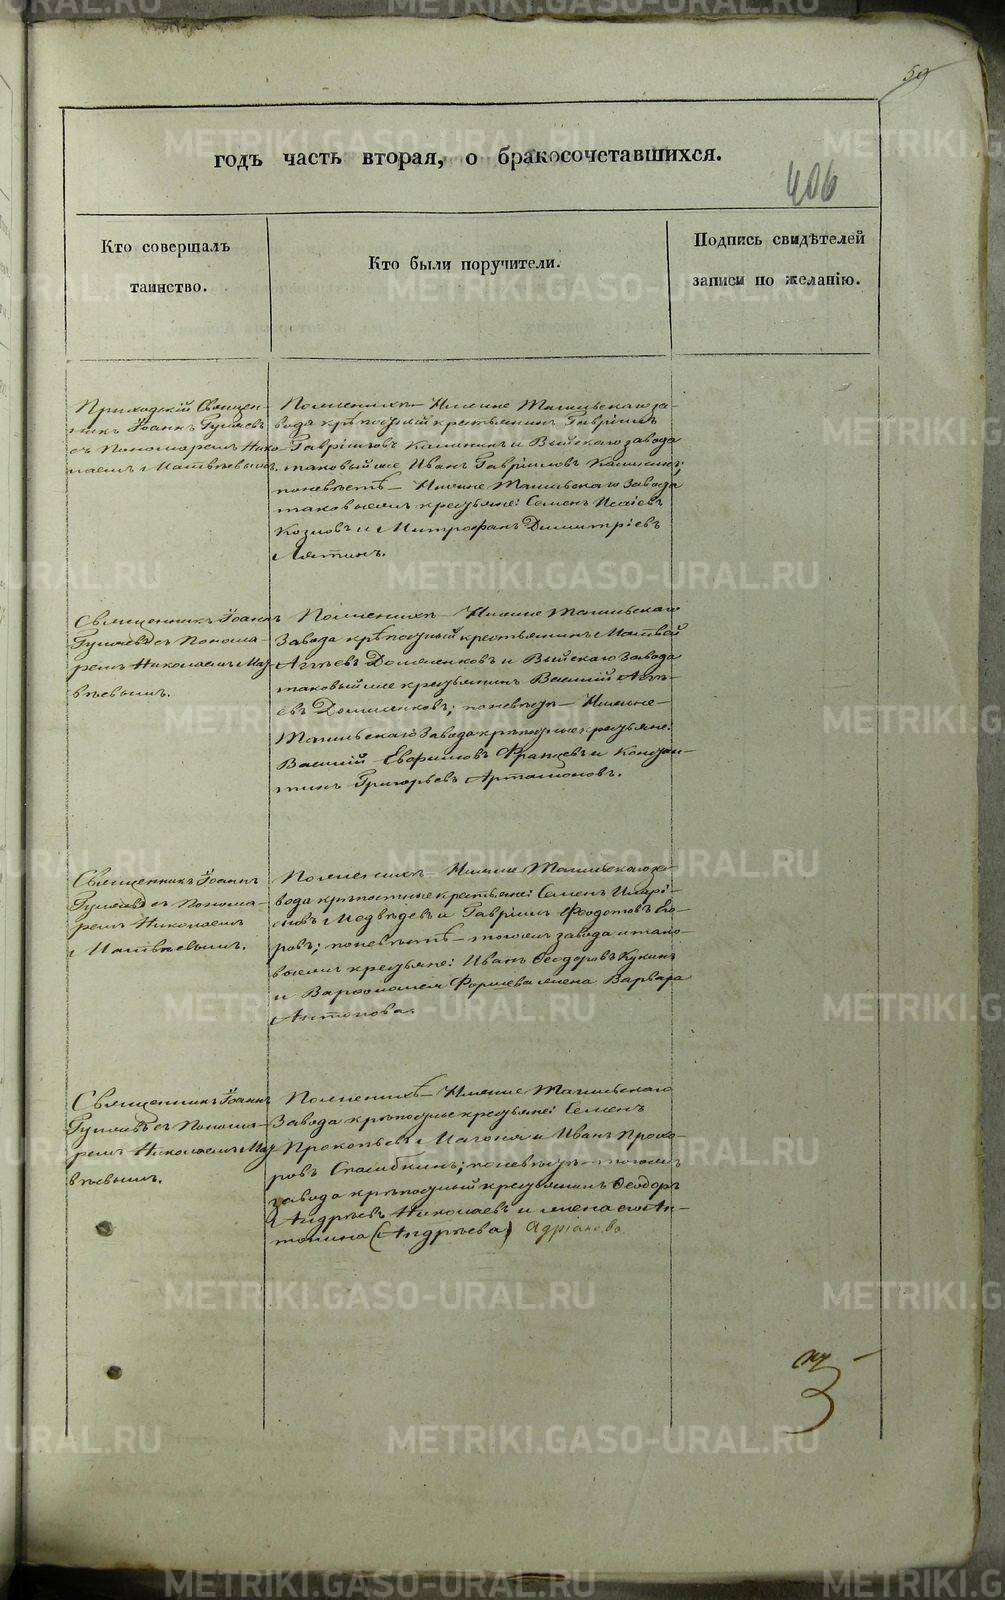 59
годъ часть вторая, о бракосочетавшихся.
406
Кто совершалъ
таинство.
Кто были поручители.
Подпись свидѣтелей
записи по желанію.
Приходскій Священ-
никъ Іоаннъ
съ Пономаремъ Нико-
лаемъ Матвѣевымъ.
По женихѣ Нижне Тагильскаго за-
вода крѣпостный крестьянинъ Гавріилъ
Гавріиловъ Калининъ и Выйскаго завода
таковый же Иванъ Гавріиловъ Калининъ;
по невѣстѣ Нижне Тагильскаго Завода
таковыежъ крестьяне: Семенъ Исаіевъ
Козловъ и Митрофанъ Димитріевъ
Священникъ Іоаннъ
съ Понома-
ремъ Николаемъ Мат-
вѣевымъ.
По женихѣ Нижне Тагильскаго
Завода крѣпостный крестьянинъ Матвей
и Выйскаго Завода
таковый же крестьянинъ Василій
по невѣстѣ Нижне-
Тагильскаго Завода крѣпостные крестьяне:
Василій Евфимовъ и Констан-
тинъ Григорьевъ Артамоновъ.
Священникъ Іоаннъ
съ Понома-
ремъ Николаемъ
Матвѣевымъ.
По женихѣ Нижне Тагильскаго за-
вода крѣпостные крестьяне: Семенъ Иларі-
оновъ Медвѣдевъ и Гавріилъ Феодотовъ Его-
ровъ; по невѣстѣ тогожъ завода и тако-
выежъ крестьяне: Иванъ Феодоровъ Кукинъ
и Варфоломея жена Варвара
Антонова.
Священникъ Іоаннъ
съ Понома-
ремъ Николаемъ Мат-
вѣевымъ.
По женихѣ Нижне Тагильскаго
Завода крѣпостные крестьяне: Семенъ
Прокопьевъ и Иванъ Прохо-
ровъ по невѣстѣ тогожъ
завода крѣпостный крестьянинъ Феодоръ
Андрѣевъ Николаевъ и жена его Ан-
тонина (Андрѣева) Адріанова